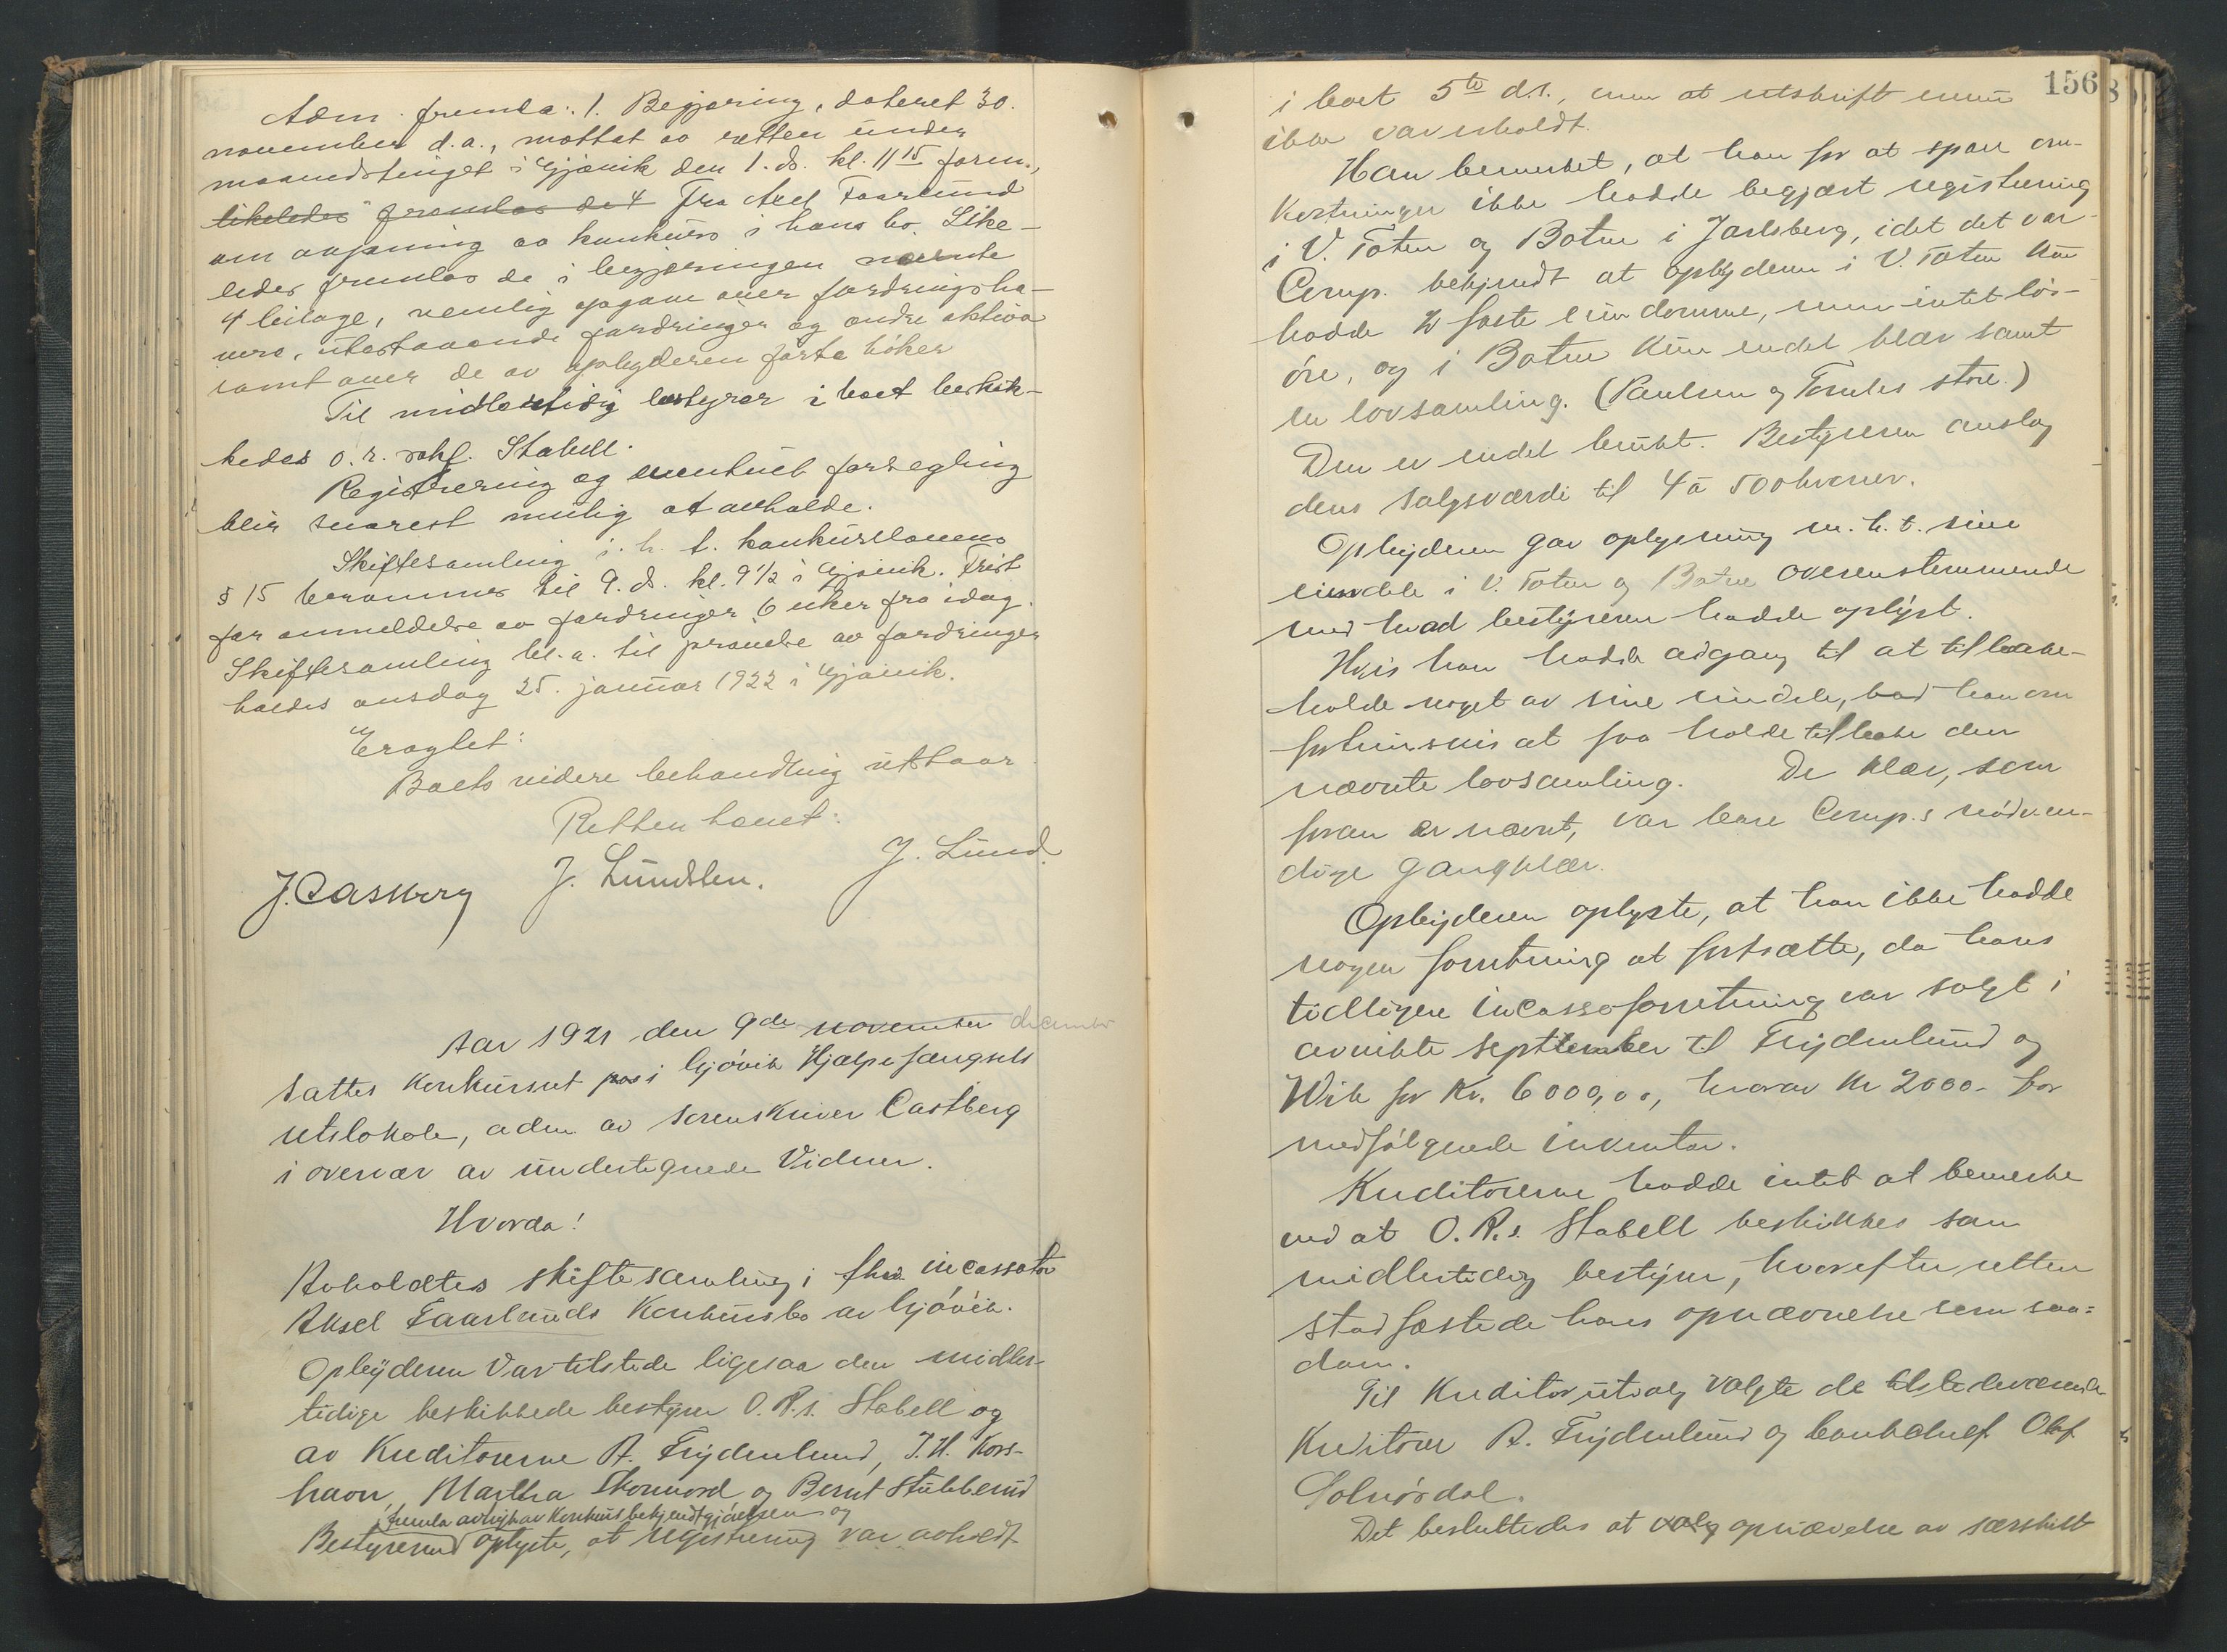 Adm. fremla: 1. Begjæring, dateret 30.
november d.a., mottat av retten under
maanedstinget i Gjøvik den 1. ds. kl. 11 15 form.,
likeledes fremlas de 4 fra Axel Faarlund
om aapning av konkurs i hans bo. Like-
ledes fremlas de i begjæringen nævnte
4 bilage, nemlig opgave over fordringsha-
vere, utestaaende fordringer og andre aktiva
samt over de av opbyderen førte bøker
Til midlertidig bestyrer i boet beskik-
kedes o.r. sakf. Stabell.
Registrering og eventuel forsegling
blir snarest mulig at avholde.
Skiftesamling i. h. t. konkurslovens
§ 15 berammes til 9. ds. kl. 9 1/2 i Gjøvik. Frist
for anmeldelse av fordringer 6 uker fra idag.
Skiftesamling bl.a. til prøvelse av fordringer
holdes onsdag 25. januar 1922 i Gjøvik.
Eragtet:
Boets videre behandling utstaar
Retten hævet:
J. Castberg J. Lundsten. J. Lund.
Aar 1921 den 9de november december
sattes Konkursret paa i Gjøvik Hjælpefængsels
retslokale, adm av sorenskriver Castberg
i overvær av undertegnede Vidner.
Hvorda!
Avholdtes skiftesamling i fhv. incassator
Aksel Faarlunds Konkursbo av Gjøvik.
Opbyderen var tilstede ligesaa den midler-
tidige beskikkede bestyrer O.R.s. Stabell og
av Kreditorerne A. Frydenlund, J. H. Kors-
havn, Martha Skonnord og Bernt Stubberud
fremla avtryk av Konkursbekjendtgjørelsen og
Bestyreren oplyste, at registrering var avholdt
156
i boet 5te d.s., men at utskrift ennu
ikke var erholdt.
Han bemerket, at han for at spare om-
kostninger ikke hadde begjært registrering
i V. Toten og Botne i Jarlsberg, idet det var
Comp. bekjendt at opbyderen i V. Toten kun
hadde 2 faste eiendomme, men intet løs-
øre, og i Botne kun endel klær samt
en lovsamling. (Paulsen og Tombes store.)
Den er endel brukt. Bestyreren anslog
dens salgsværdi til 4 à 500 kroner.
Opbyderen gav oplysning m. h. t. sine
eiendele i V. Toten og Botne overensstemmende
med hvad bestyreren hadde oplyst.
Hvis han hadde adgang til at tilbake-
holde noget av sine eiendele, bad han om
fortrinsvis at faa holde tilbake den
nævnte lovsamling. De klær, som
foran er nævnt, var bare Comp.s nødven-
dige gangklær.
Opbyderen oplyste, at han ikke hadde
nogen forretning at fortsætte, da hans
tidligere incassoforretning var solgt i
avvikte september til Frydenlund og
Wik for Kr. 6000,00, hvorav kr 2000.- for
medfølgende inventar.
Kreditorerne hadde intet at bemerke
ved at O.R.s. Stabell beskikkes som
midlertidig bestyrer, hvorefter retten
stadfæstede hans opnævnelse som saa=
dan.
Til Kreditorutvalg valgte de tilstedeværende
Kreditorer A. Frydenlund og bankchef Olaf
Solnørdal.
Det besluttedes at valg opnævnelse av særskilt